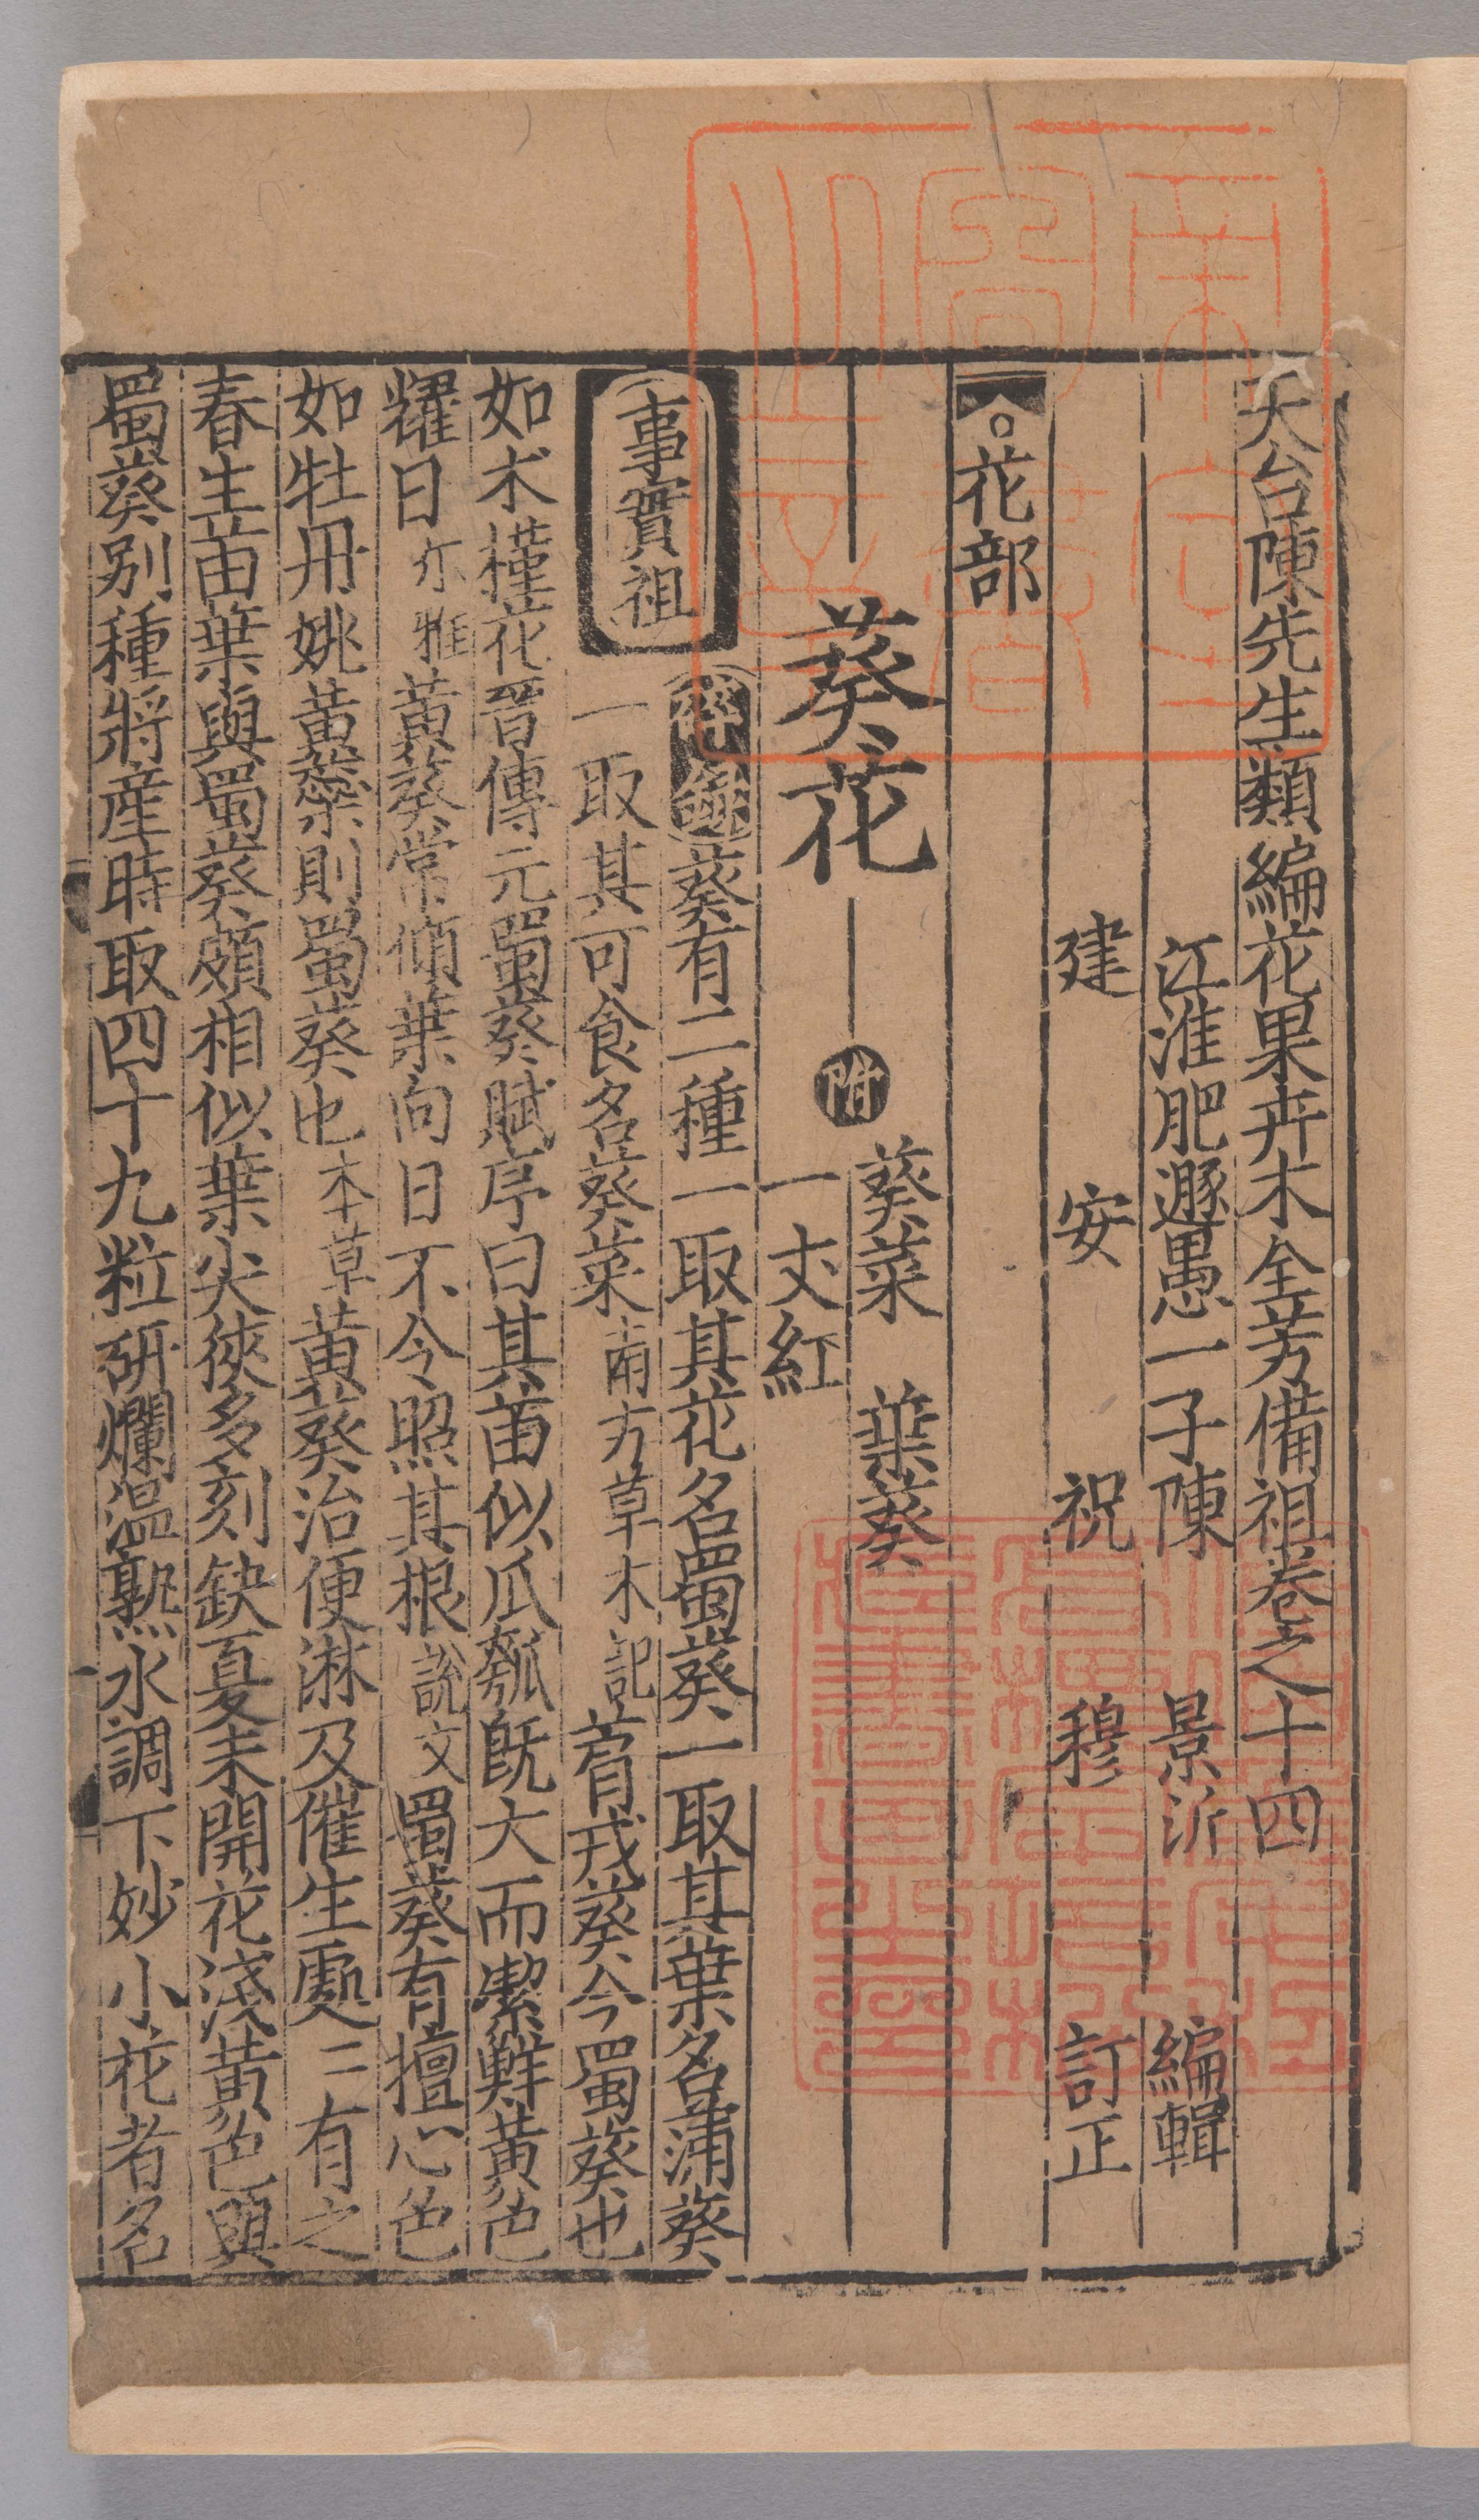 天台陳先生類編花果卉木全芳備祖卷之十四
江淮肥遯愚一子陳 景沂 編輯
建 安 祝 穆 訂正
花部
葵花 附 葵菜 葉葵
一丈紅
事實祖
碎錄 葵有二種一取其花名蜀葵一取其葉名蒲葵
一取其可食名葵菜南方草木記 菺戎葵今蜀葵也
如木槿花晋傳元蜀葵賦序曰其苗似瓜瓠旣大而㓗鮮黄色
耀日尓雅黄葵常傾葉向日不令照其根說文蜀葵有檀心色
如牡丹姚黄蘂則蜀葵也本草黄葵治便淋及催生處二有之
春生苗葉與蜀葵頗相似葉尖狹多刻缺夏末開花淺黄色與
蜀葵別種將産時取四十九粒研爛温熟水調下妙小花者名